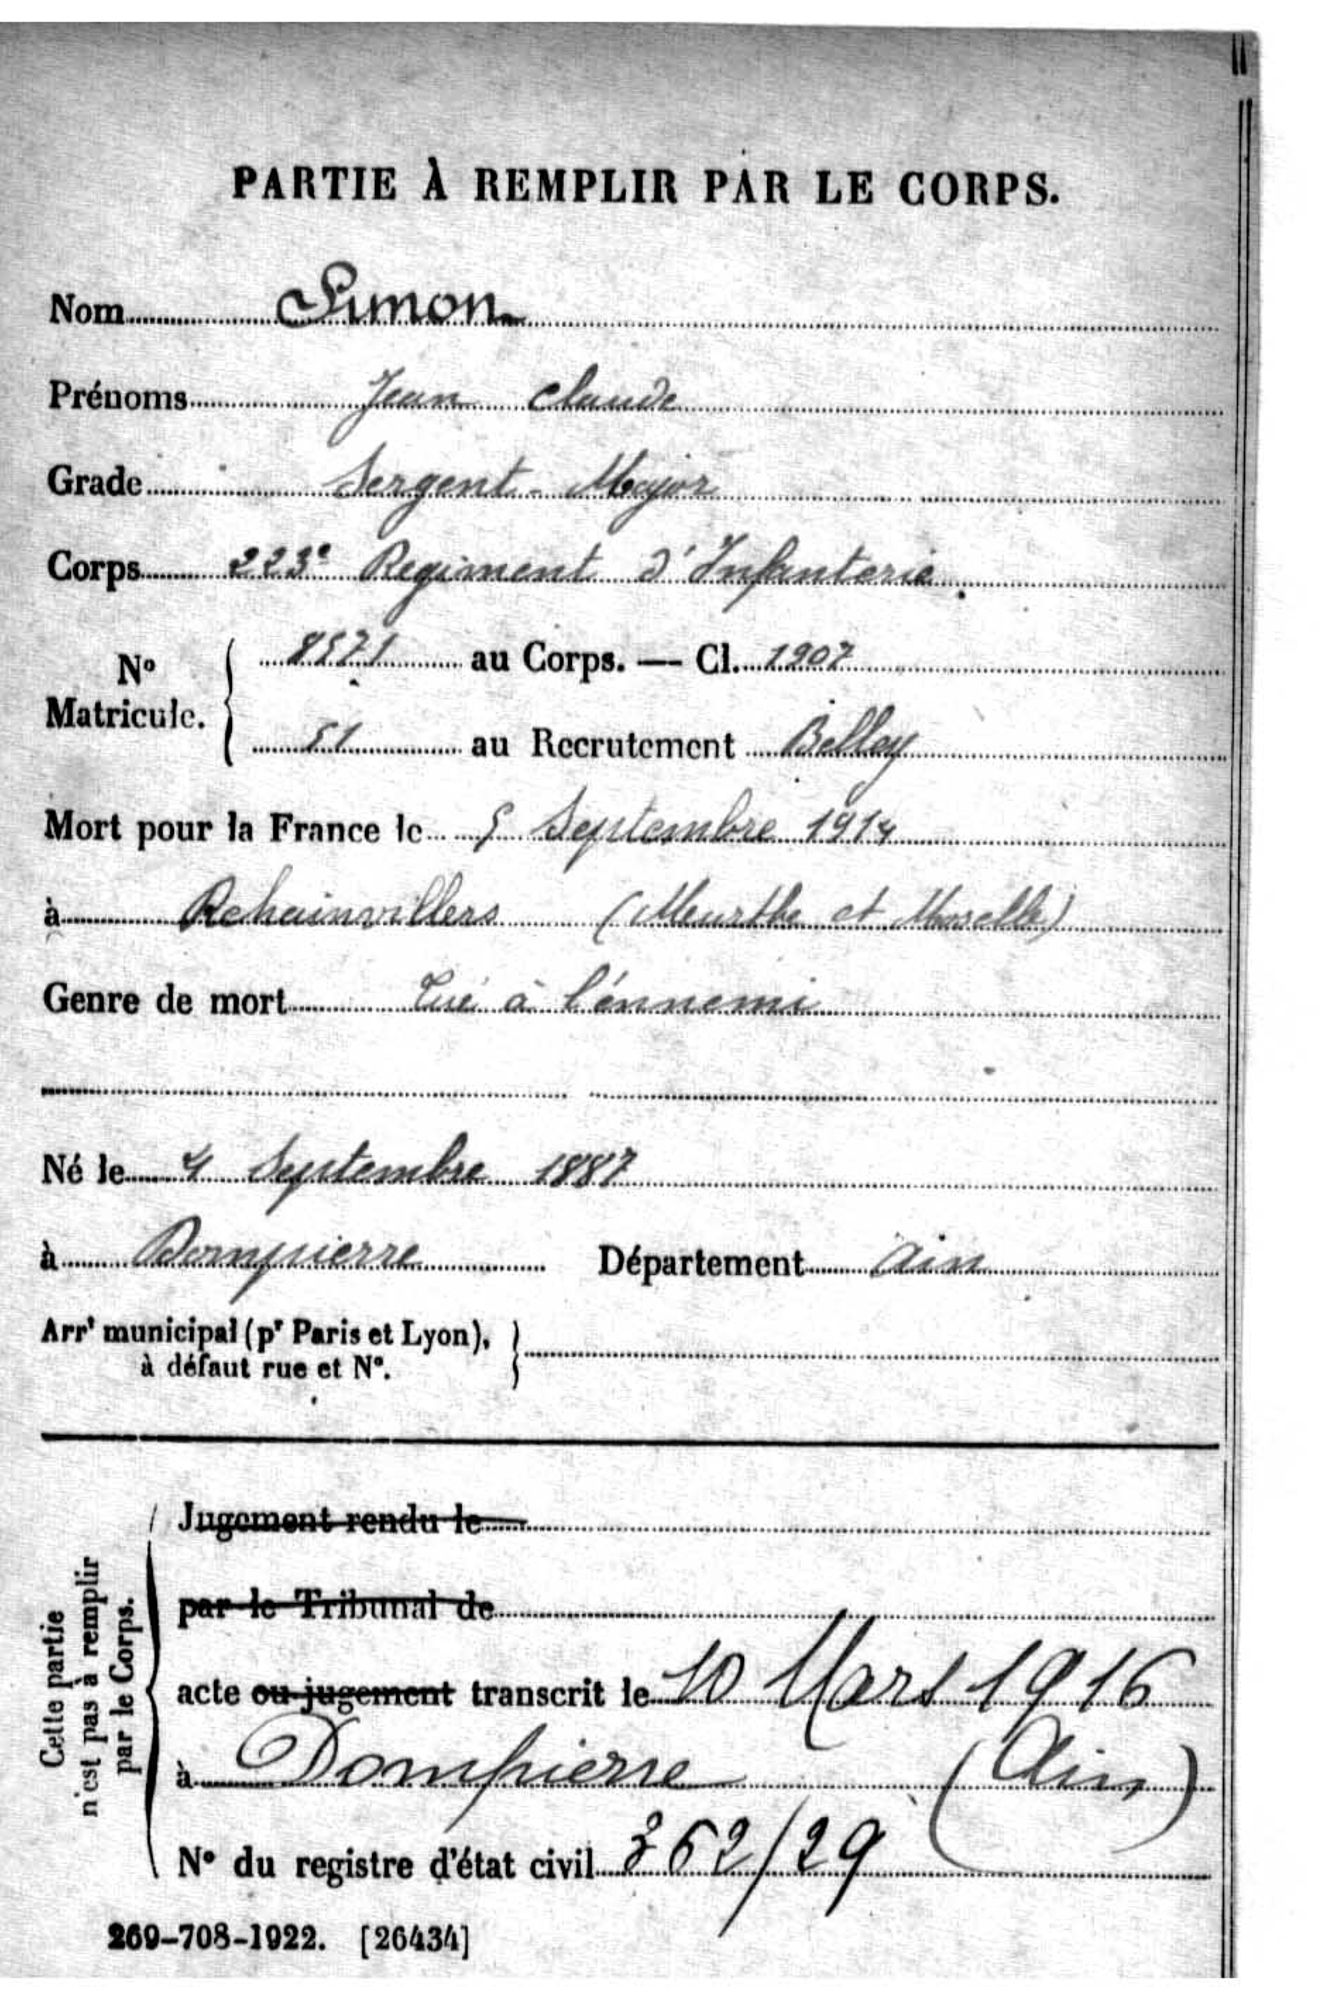 PARTIE À REMPLIR PAR LE CORPS.
Nom Simon
Prénoms Jean Claude
Grade Sergent-Major
Corps 223e Regiment d'Infanterie.
No Matricule. 8571 au Corps. — Cl. 1907
51 au Recrutement Belley
Mort pour la France le 5 Septembre 1914
à Rehainvillers (Meurthe et Moselle)
Genre de mort Tué à l'énnemi
Né le 4 Septembre 1887
à Dompierre Département Ain
Arrt municipal (pr Paris et Lyon),
à défaut rue et No.
Cette partie
n'est pas à remplir
par le Corps.
Jugement rendu le
par le Tribunal de
acte ou jugement transcrit le 10 Mars 1916
à Dompierre (Ain)
No du registre d'état civil 362/29
269-708-1922. [26434]